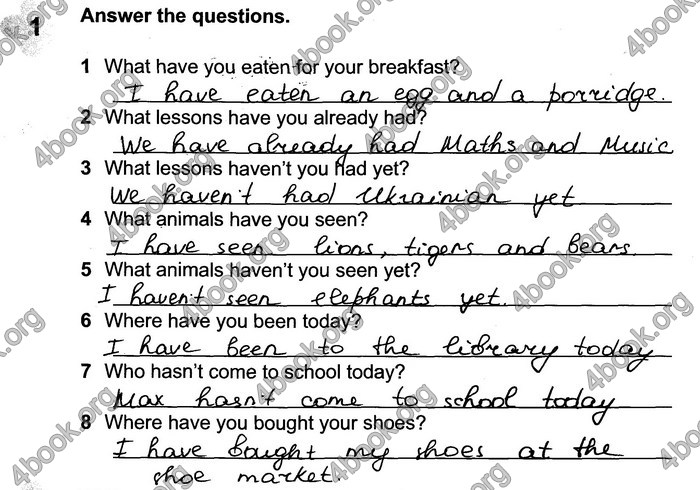 1
Answer the questions.
1 What have you eaten for your breakfast?
I have eaten an egg and a porridge.
2 What lessons have you already had?
We have already had Maths and Music
3 What lessons haven't you had yet?
We haven't had Ukrainian yet
4 What animals have you seen?
I have seen lions, tigers and bears.
5 What animals haven't you seen yet?
I haven't seen elephants yet.
6 Where have you been today?
I have been to the library today
7 Who hasn't come to school today?
Max hasn't come to school today
8 Where have you bought your shoes?
I have bought my shoes at the
shoe market.
4book.org